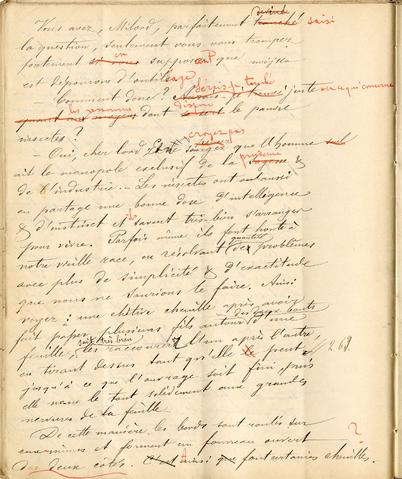 Vous avez, Milord, parfaitement touché saisi
la question, seulement vous vous trompez
fortement supposant que
est dépourvus d'outillage.
— Comment donc? Aurais-je touché juste en ce qui concerne
les moyens dont dispose le pauvre
insecte?
— Oui, cher lord, croyez pas que l'homme
ait le monopole exclusif de la sagesse &
de l'industrie. Les insectes ont aussi
en partage une bonne dose d'intelligence
& d'instinct & savent très bien s'arranger
pour vivre. Parfois même ils font honte à
notre vieille race, en résolvant quantité de problèmes
avec plus de simplicité & d'exactitude
que nous ne saurions le faire. Ainsi
voyez: une chétive chenille après avoir
fait passer plusieurs fils autour des deux bouts d'une
feuille, sait très bien les raccourcir l'un après l'autre,
en tirant dessus tant qu'elle peut, 269.
jusqu'à ce que l'ouvrage soit fini, puis
elle le tout solidement aux grandes
nervures de la feuille.
De cette manière, les bords sont roulés sur
eux-mêmes et forment un fourreau ouvert ?
des deux côtés. C'est ainsi que font certaines chenilles.